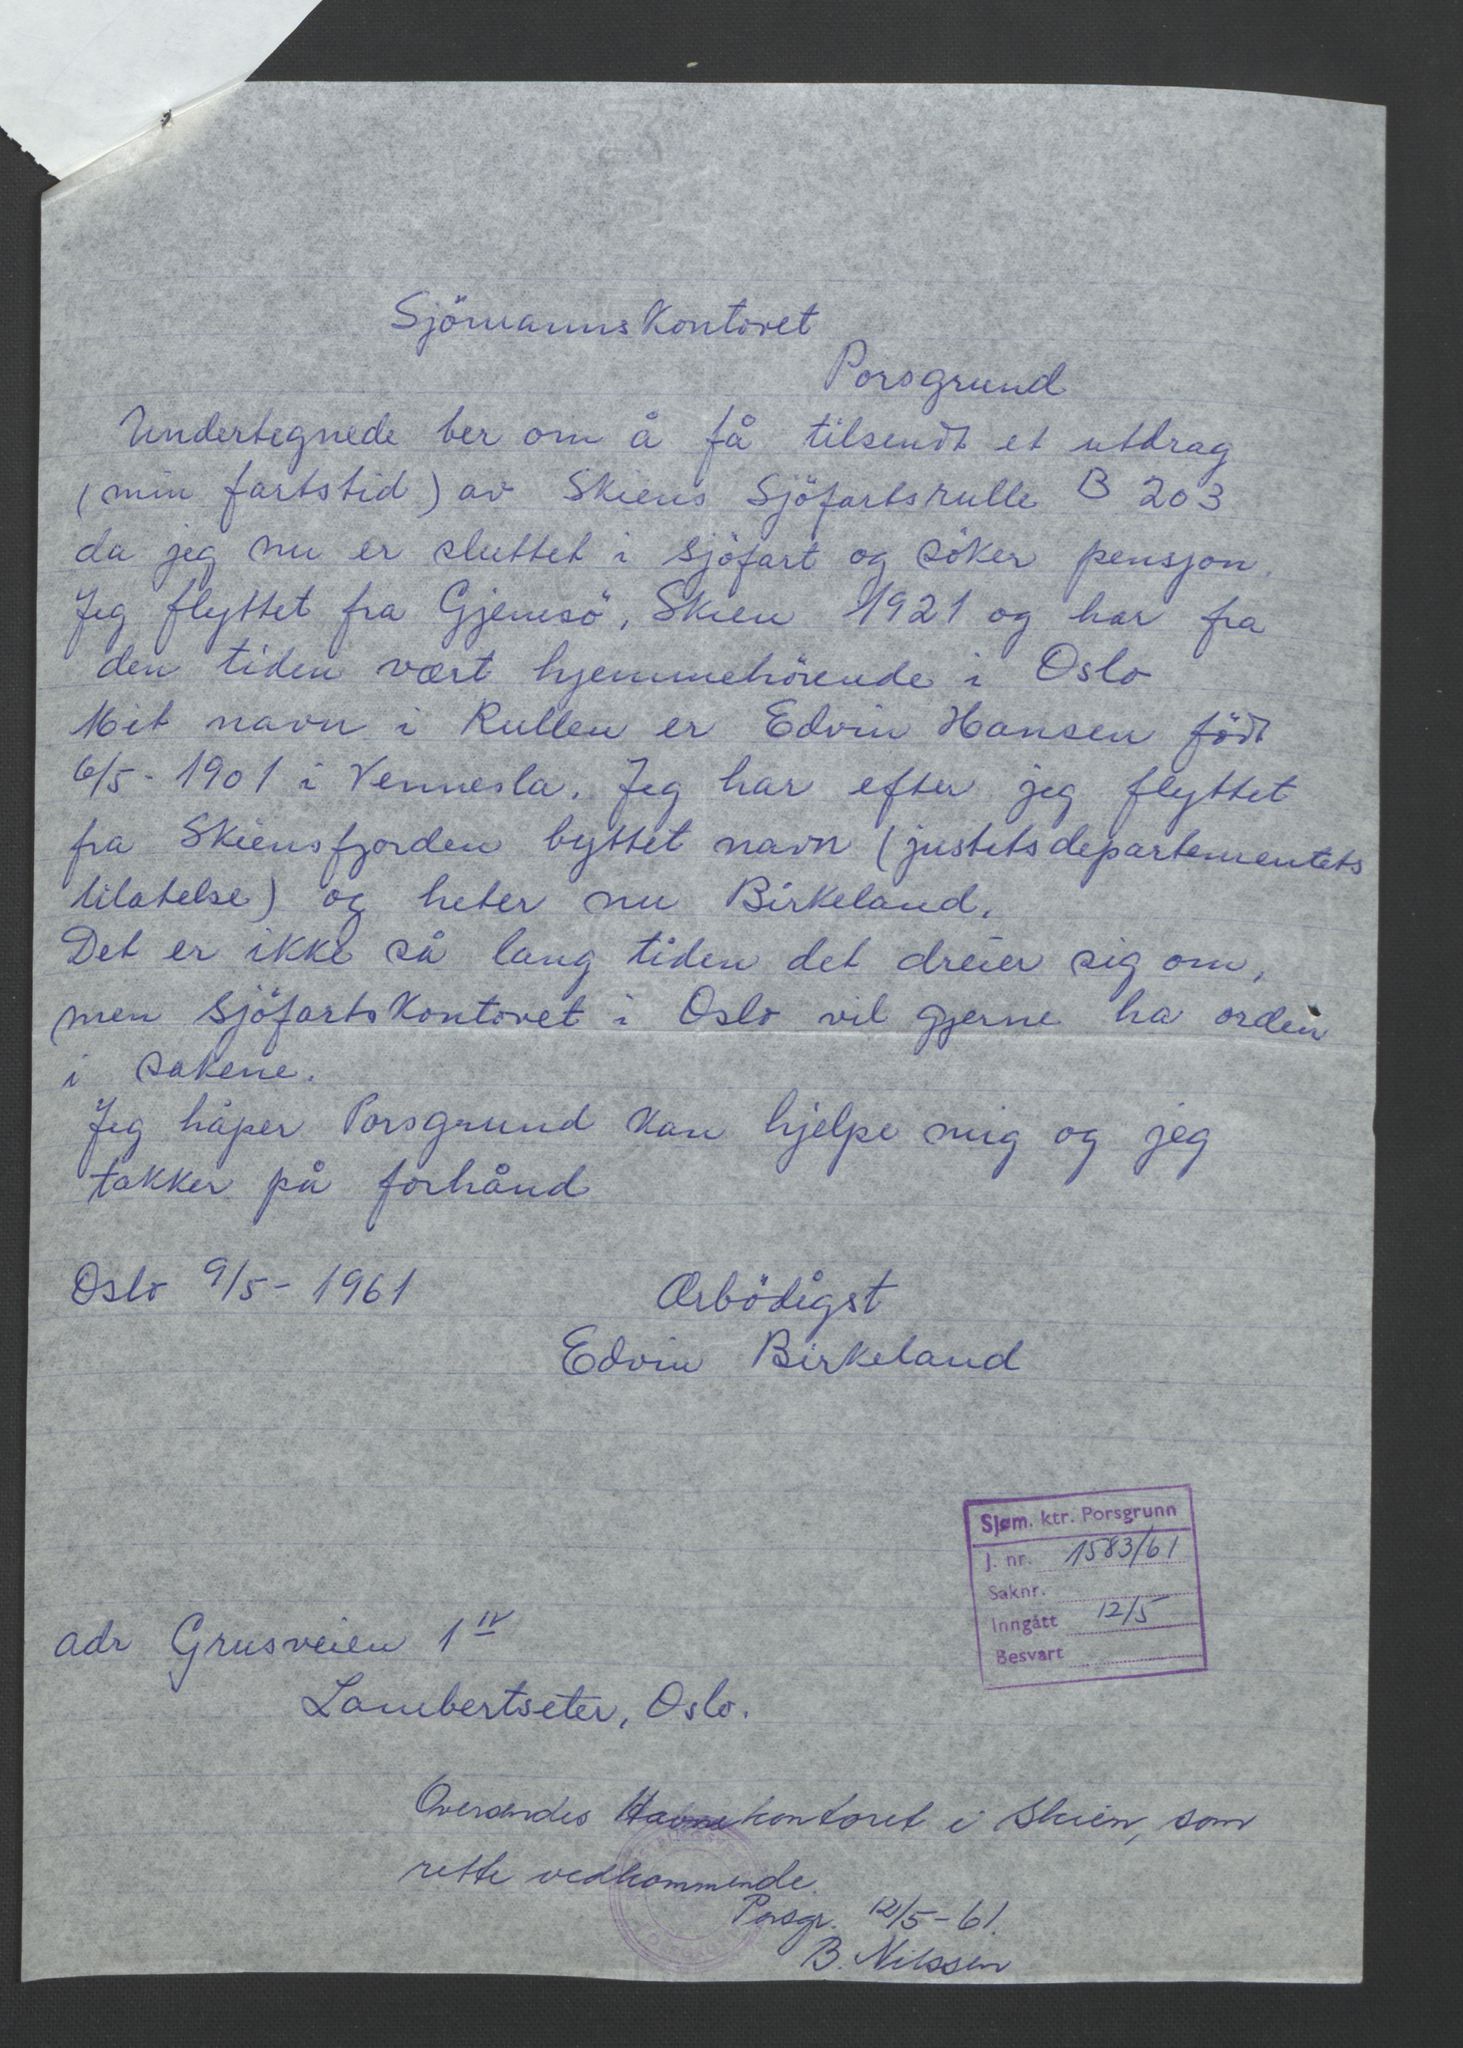 Sjömannskontoret
Porsgrund
Undertegnede ber om å få tilsendt et utdrag
(min fartstid) av Skiens Sjöfartsrulle B 203
da jeg nu er sluttet i sjöfart og söker pensjon.
Jeg flyttet fra Gjemsö, Skien 1921 og har fra
den tiden vært hjemmehörende i Oslo
Mit navn i Rullen er Edvin Hansen födt
6/5 - 1901 i Vennesla. Jeg har efter jeg flyttet
fra Skiensfjorden byttet navn (justitsdepartementets
tilatelse) og heter nu Birkeland.
Det er ikke så lang tiden det dreier sig om,
men sjöfartskontoret i Oslo vil gjerne ha orden
i sakene.
Jeg håper Porsgrund kan hjelpe mig og jeg
takker på forhånd
Oslo 9/5 - 1961
Ærbödigst
Edvin Birkeland
Sjøm. ktr. Porsgrunn
J. nr. 1583/61
Saknr.
Inngått 12/5
Besvart
adr Grusveien 1 IV
Lambertseter, Oslo.
Oversendes Havnekontoret i Skien, som
rette vedkommende.
Porsgr. 12/5-61.
B. Nilssen